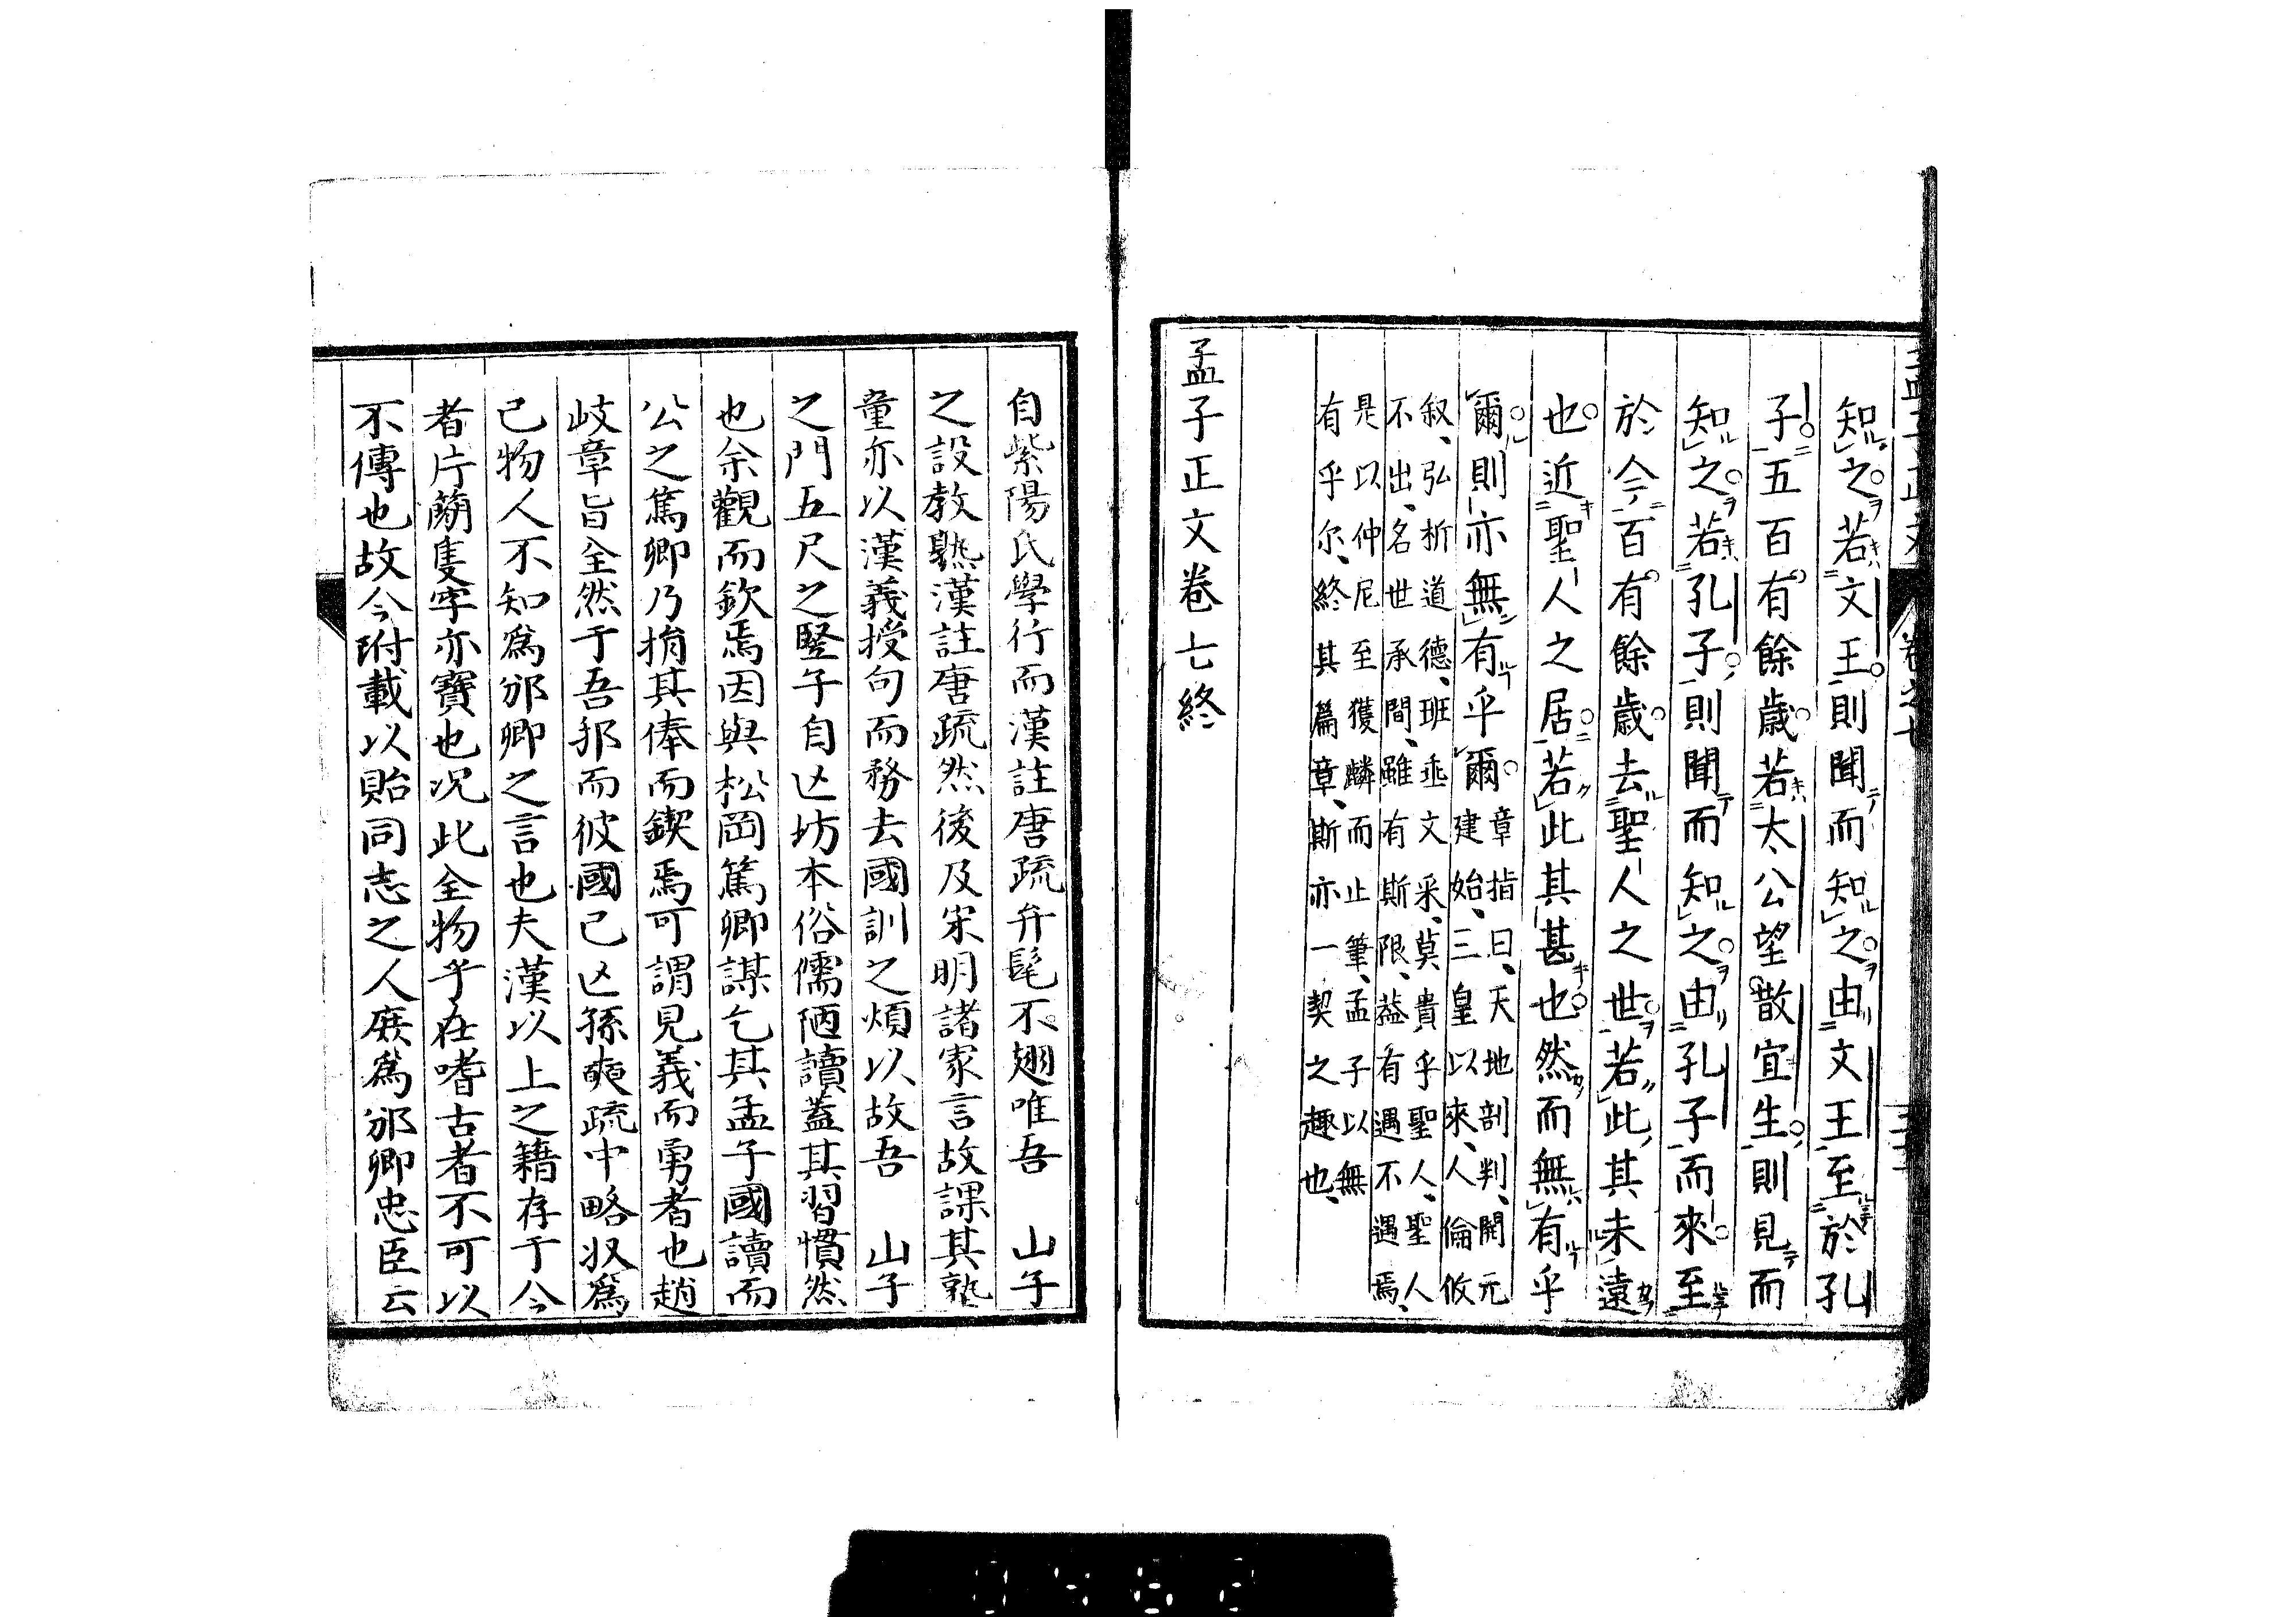 知之若文王則聞而知之由文王至於孔
子五百有餘歲若太公望散宜生則見而
知之若孔子則聞而知之由孔子而來至
於今百有餘歲去聖人之世若此其未遠
也近聖人之居若此其甚也然而無有乎
爾則亦無有乎爾
章指曰、天地剖判、開元
建始、三皇以來、人倫攸
叙、弘析道德、班垂文采、莫貴乎聖人、聖人
不出、名世承間、雖有斯限、蓋有遇不遇焉、
是以仲尼至獲麟而止筆、孟子以無
有乎尔、終其篇章、斯亦一契之趣也、
孟子正文卷七終
自紫陽氏學行而漢註唐疏弁髦不翅唯吾　山子
之設教熟漢註唐疏然後及宋明諸家言故課其塾
童亦以漢義授句而務去國訓之煩以故吾　山子
之門五尺之豎子自亾坊本俗儒陋讀蓋其習慣然
也余觀而欽焉因與松岡篤卿謀乞其孟子國讀而
公之篤卿乃捐其俸而鍥焉可謂見義而勇者也趙
岐章旨全然于吾邦而彼國已亾孫奭疏中略収爲
已物人不知爲邠卿之言也夫漢以上之籍存于今
者片蕳隻字亦寶也况此全物乎在嗜古者不可以
不傳也故今附載以貽同志之人庻爲邠卿忠臣云